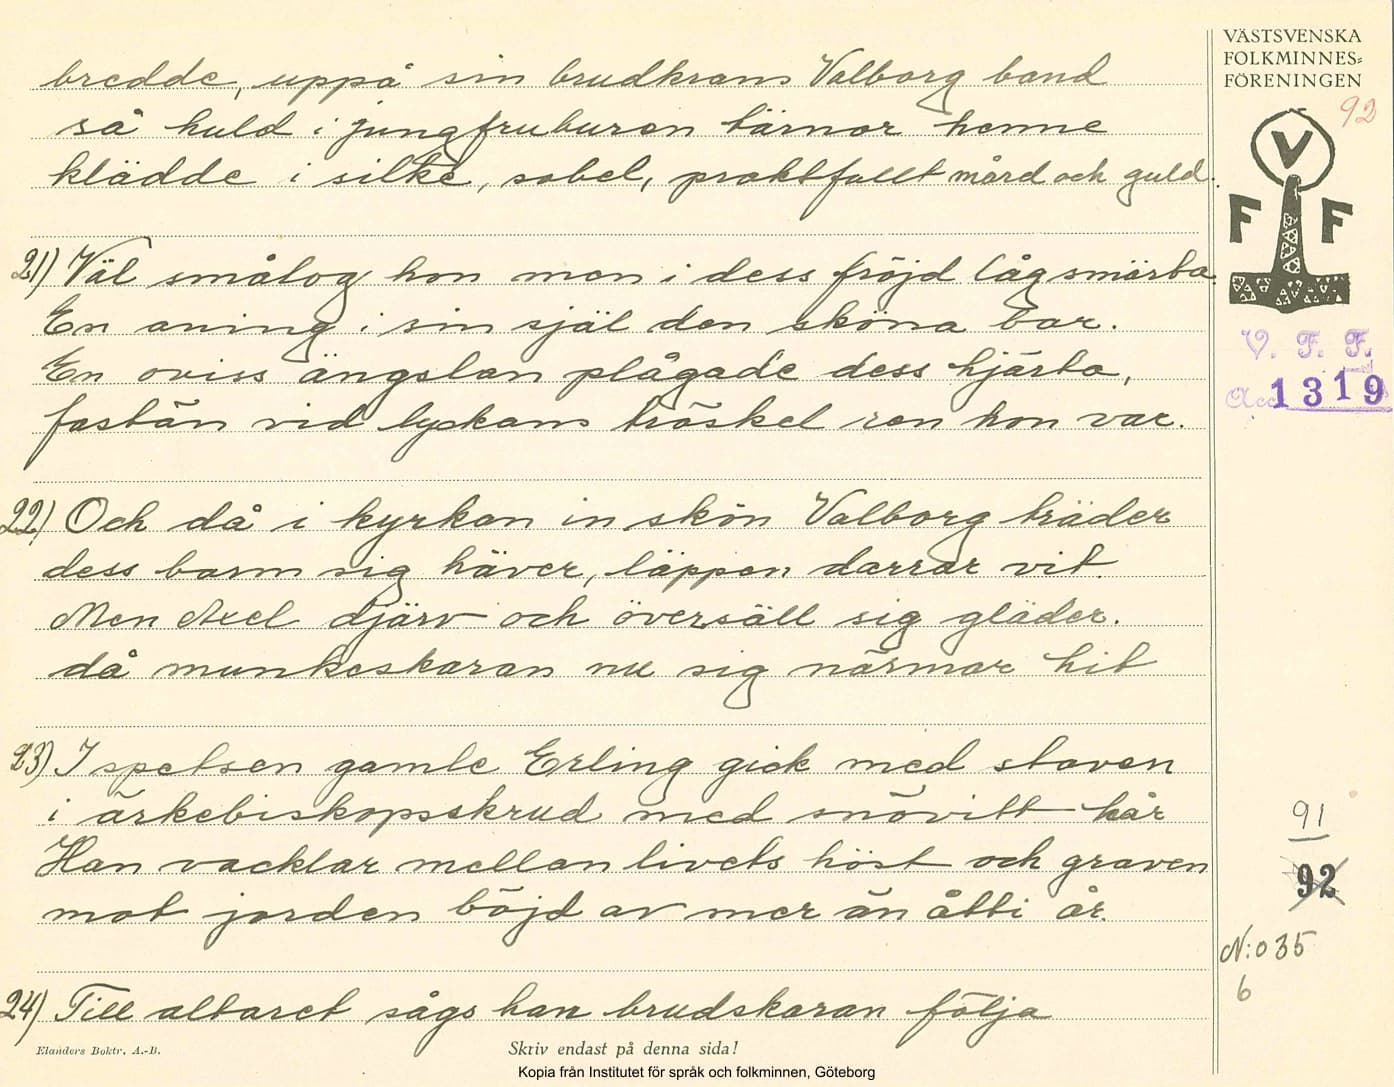 VÄSTSVENSKA
FOLKMINNES-
FÖRENINGEN
92
V
F F
V. F. F.
Acc 1319
bredde, uppå sin brudkrans Valborg band
så huld i jungfruburen tärnor henne
klädde i silke, sobel, praktfullt mård och guld.
21) Väl smålog hon men i dess fröjd låg smärta.
En aning i sin själ den sköna bar.
En oviss ängslan plågade dess hjärta,
fastän vid lyckans tröskel ren hon var.
22) Och då i kyrkan in skön Valborg träder
dess barm sig häver, läppen darrar vit.
Men Axel djärv och översäll sig gläder.
då munkeskaran nu sig närmar hit
23) I spetsen gamle Erling gick med staven
i ärkebiskopsskrud med snövitt hår
Han vacklar mellan livets höst och graven
mot jorden böjd av mer än åtti år.
24) Till altaret sågs han brudskaran följa
91
92
N:o 35
6
Elanders Boktr. A.-B.
Skriv endast på denna sida!
Kopia från Institutet för språk och folkminnen, Göteborg